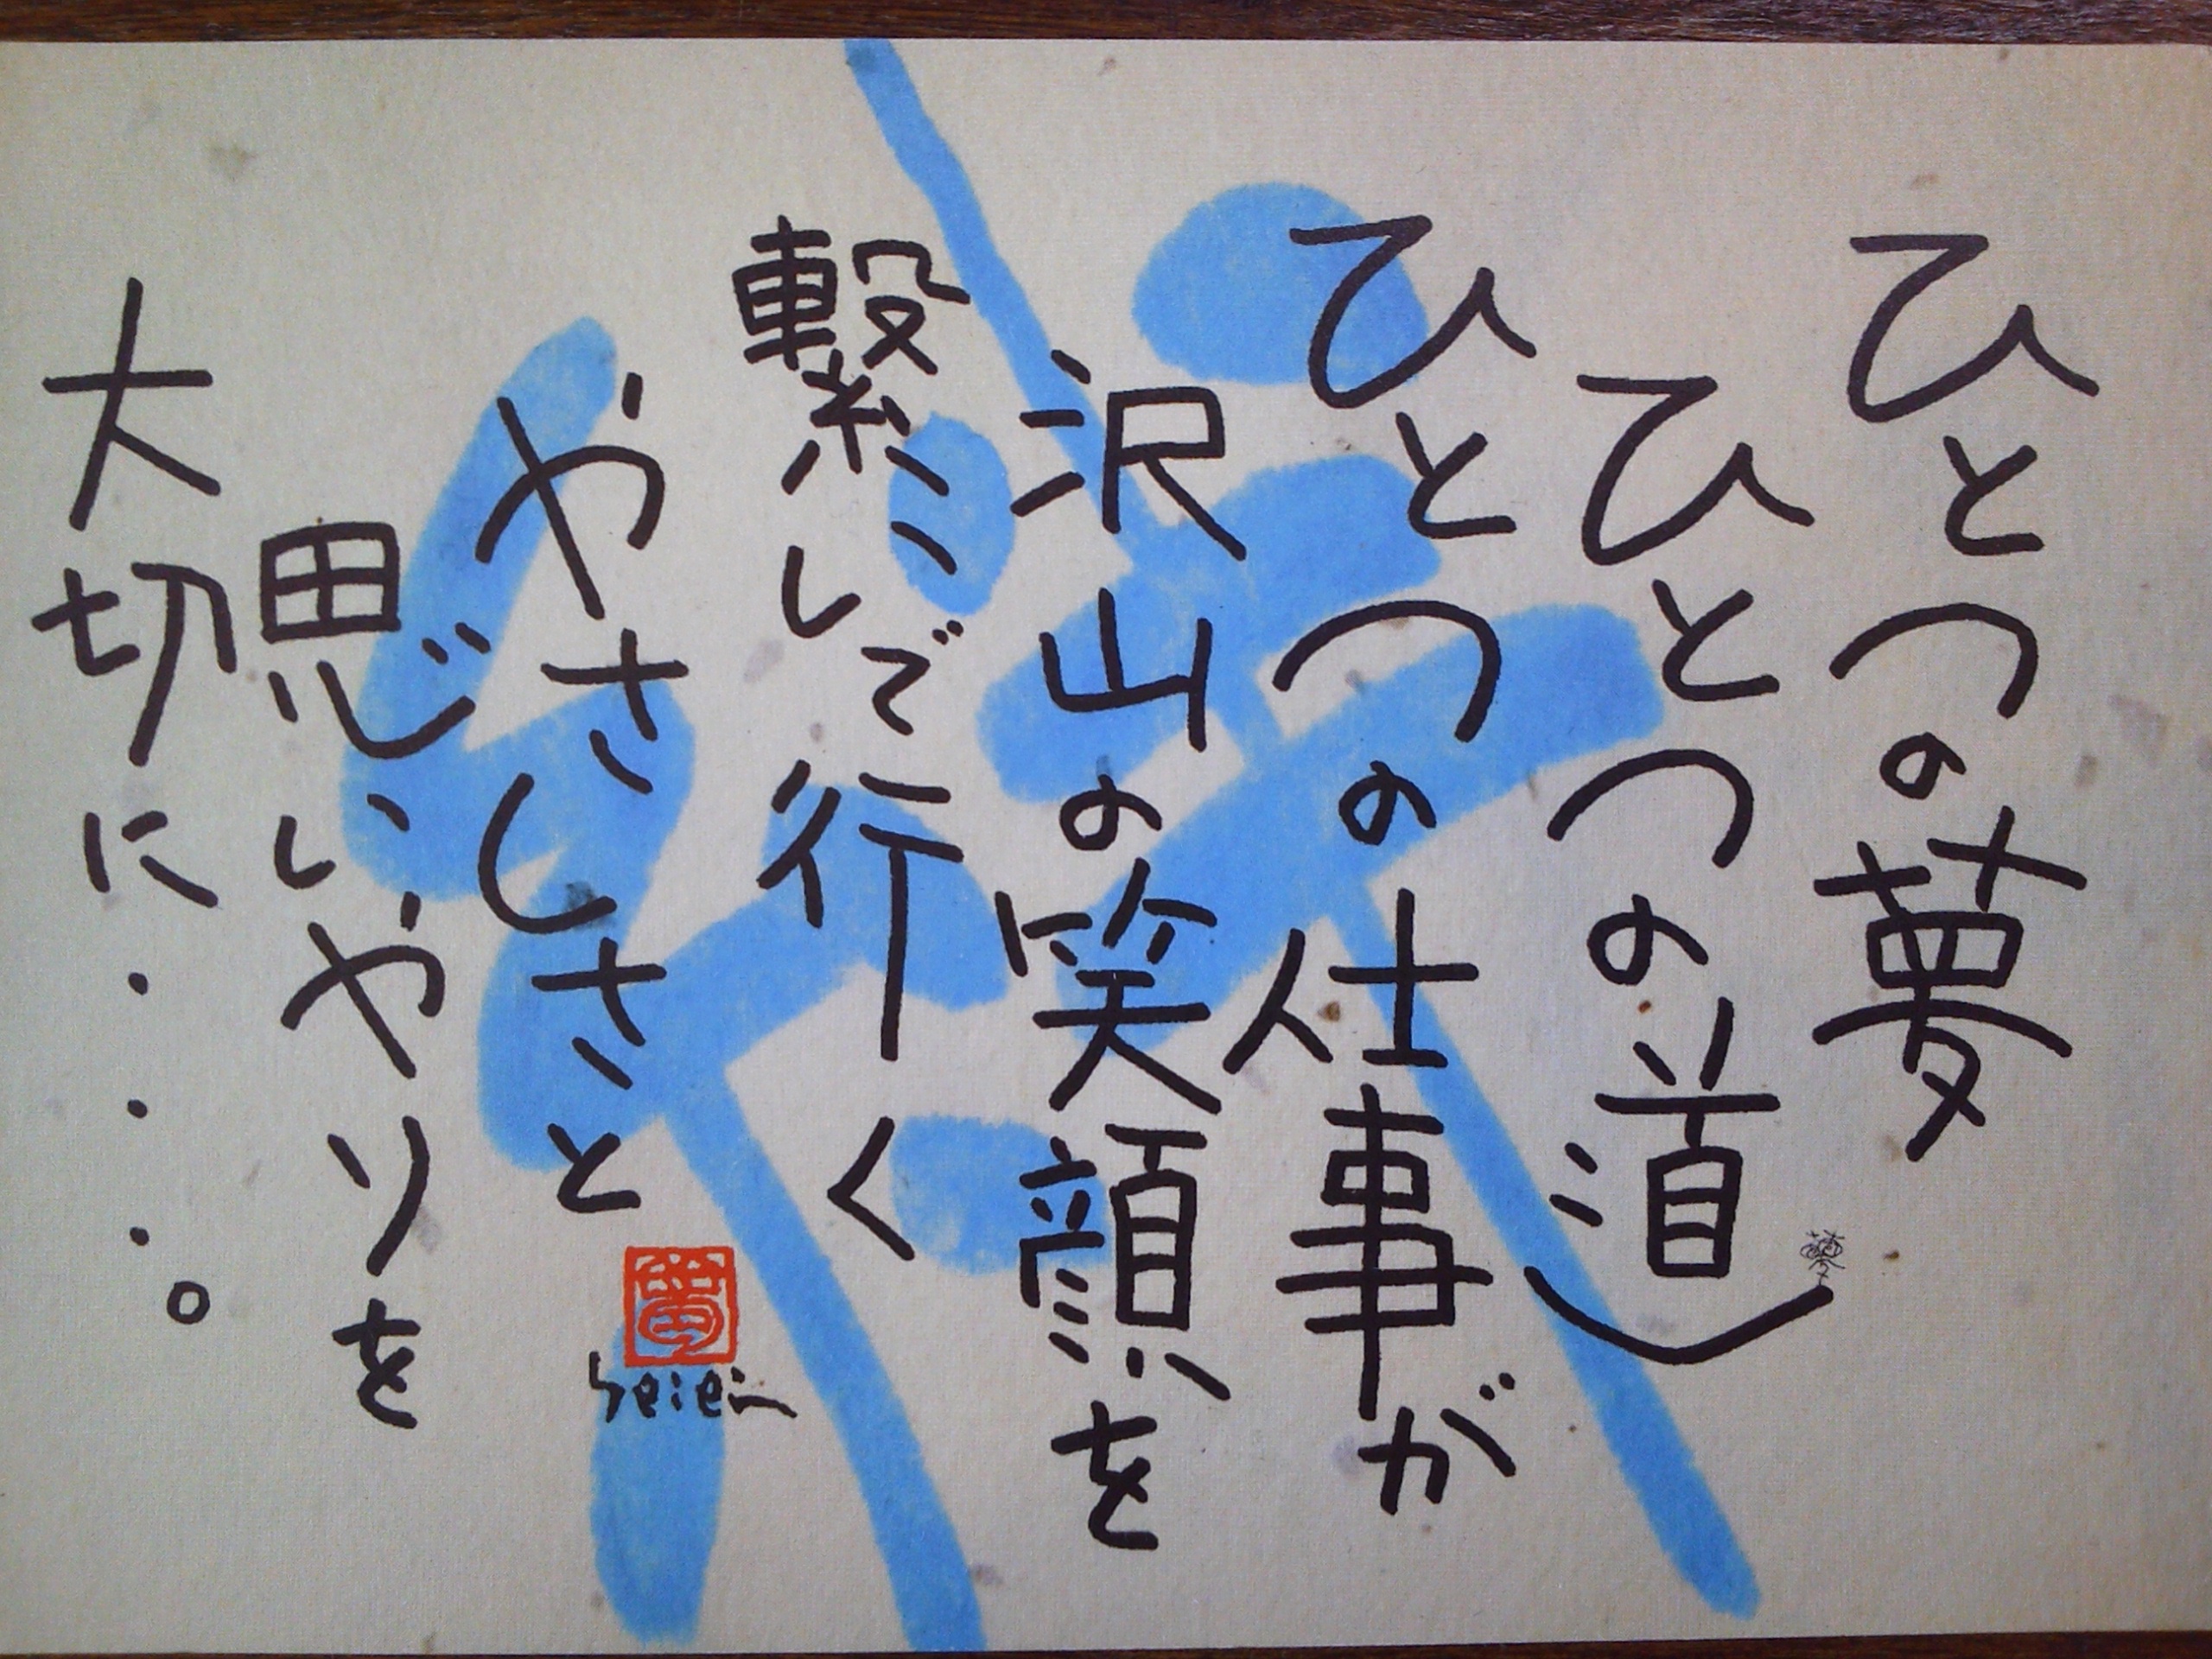 ひとつの夢
ひとつの道
ひとつの仕事が
沢山の笑顔を
繋いで行く
やさしさと
思いやりを
大切に・・・。
夢
seiei